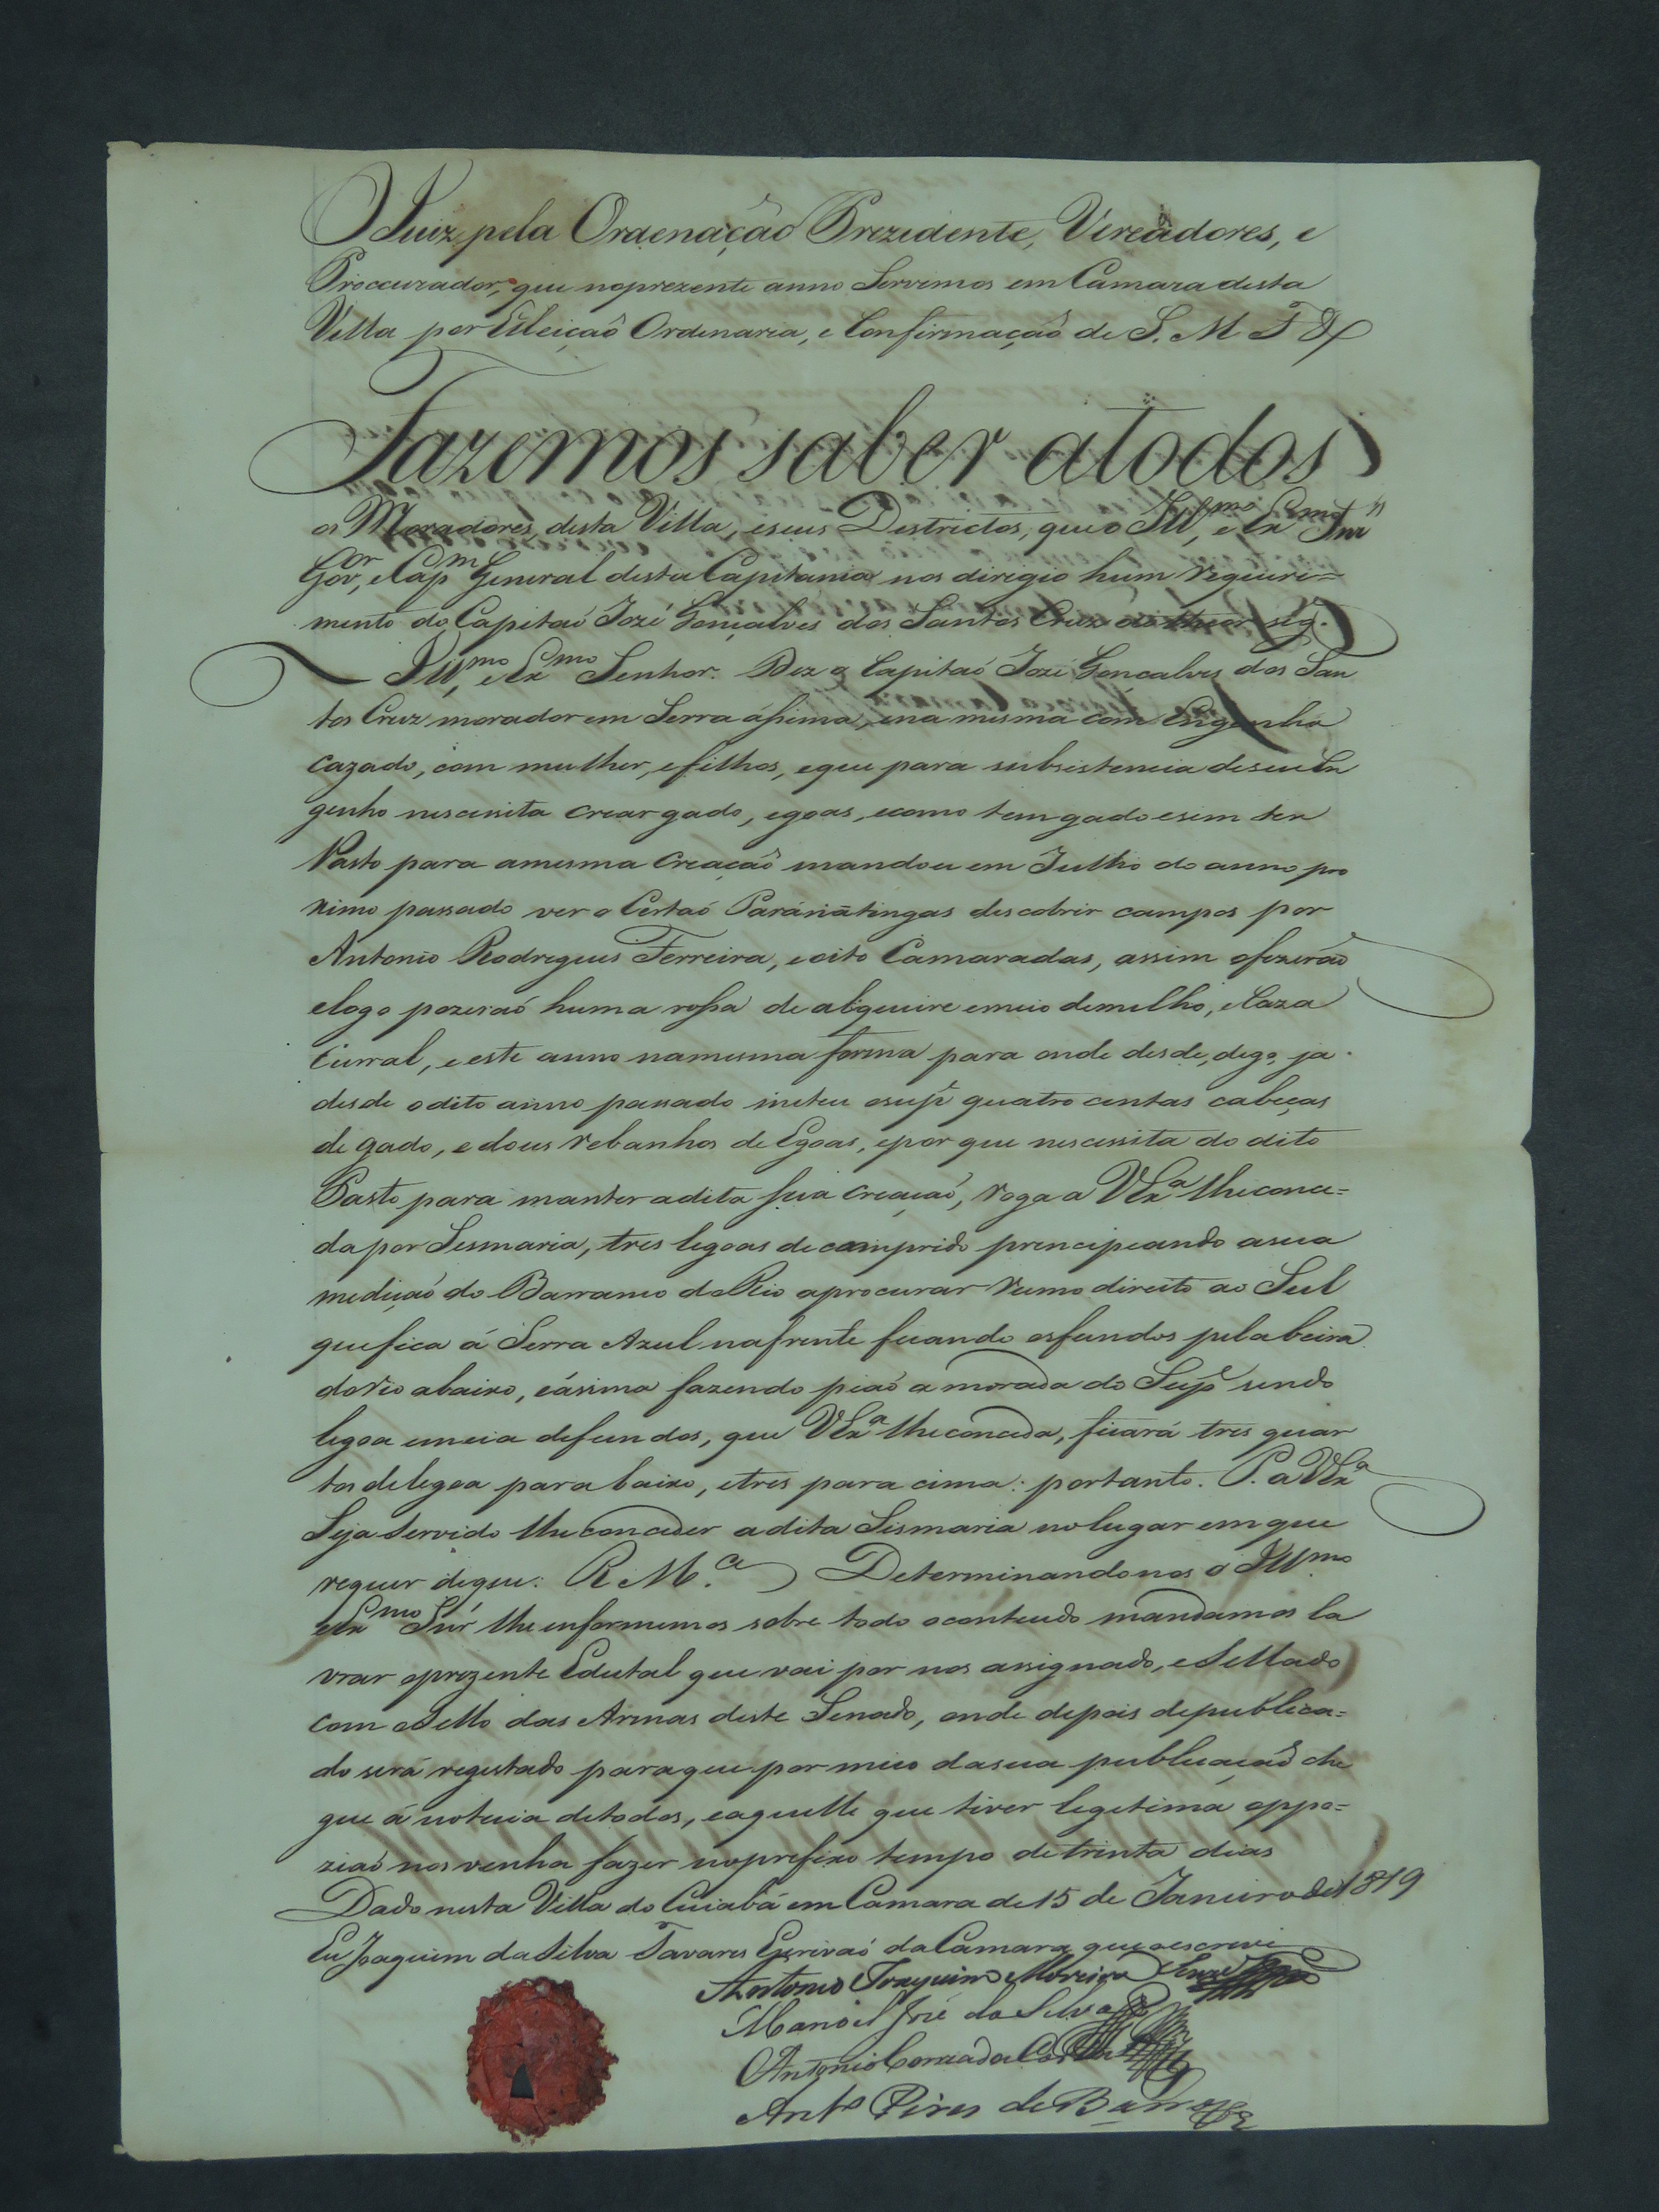 O Juiz pela Ordenação Prezidente, Vereadores, e
Procurador, que noprezente anno Servimos em Camara desta
Villa por Elleiçaõ Ordenaria, e Confirmaçaõ de S. M F &
Fazemos saber atodos
os Moradores, desta Villa, eseus Destrictos, que o Ill.mo, e Ex.mo Snr
Gov.or, e Cap.m General desta Capitania nos dirigio hum requiri=
mento do Capitaõ Jozé Gonçalves dos Santos Cruz do theor seg.
Ill.mo, e Ex.mo Senhor. Diz o Capitaõ Jozé Goncalves dos San
tos Cruz morador em Serra ássima, ena mesma com Engenho
cazado, com mulher, efilhos, eque para subsistencia deseu En
genho nescessita crear gado, egoas, ecomo tem gado esem ter
Pasto para amesma Creaçaõ mandou em Julho do anno pro
ximo passado ver o Certaõ Paránátingas descobrir campos por
Antonio Rodrigues Ferreira, eoito Camaradas, assim ofizeraõ
elogo pozeraõ huma rossa de alqueire emeio demilho, eCaza
Curral, eeste anno namesma forma para onde desde, digo, ja
desde odito anno passado meteu osup.e quatro centas cabeças
de gado, e dous rebanhos de Egoas, epor que nescessita do dito
Pasto para manter adita sua creaçaõ, roga a VEx.a lheconce=
da por Sesmaria, tres legoas decomprido principeando asua
mediçaõ do Barranco do Rio aprocurar rumo direito ao Sul
quefica á Serra Azul nafrente ficando osfundos pelabeira
dorio abaixo, eásima fazendo piaõ a morada do Sup.e sendo
legoa emeia defundos, que VEx.a lheconceda, ficará tres quar
tos delegoa parabaixo, etres para cima: portanto. P. a VEx.a
Seja Servido lheconceder adita Sismaria nolugar em que
requer dique: R M.ce Determinandonos o Ill.mo
e Ex.mo Snr lhe enformemos sobre todo oconteudo mandamos la
vrar oprezente Edital que vai por nos assignado, eSellado
com oSello das Armas deste Senado, onde depois depublica=
do será registado paraque por meio dasua publicaçaõ che
gue á noticia detodos, eaquelle que tiver legitima oppo=
ziaõ nos venha fazer noprefixo tempo detrinta dias
Dado nesta Villa do Cuiabá em Camara de 15 de Janeiro de 1819
Eu Joaquim daSilva Tavares Escrivaõ daCamara que oescrevi
Antonio Joaquim Moreira Serra
Manoel José da Silva
Antonio Correa da Costa
Ant.o Pires de Barros